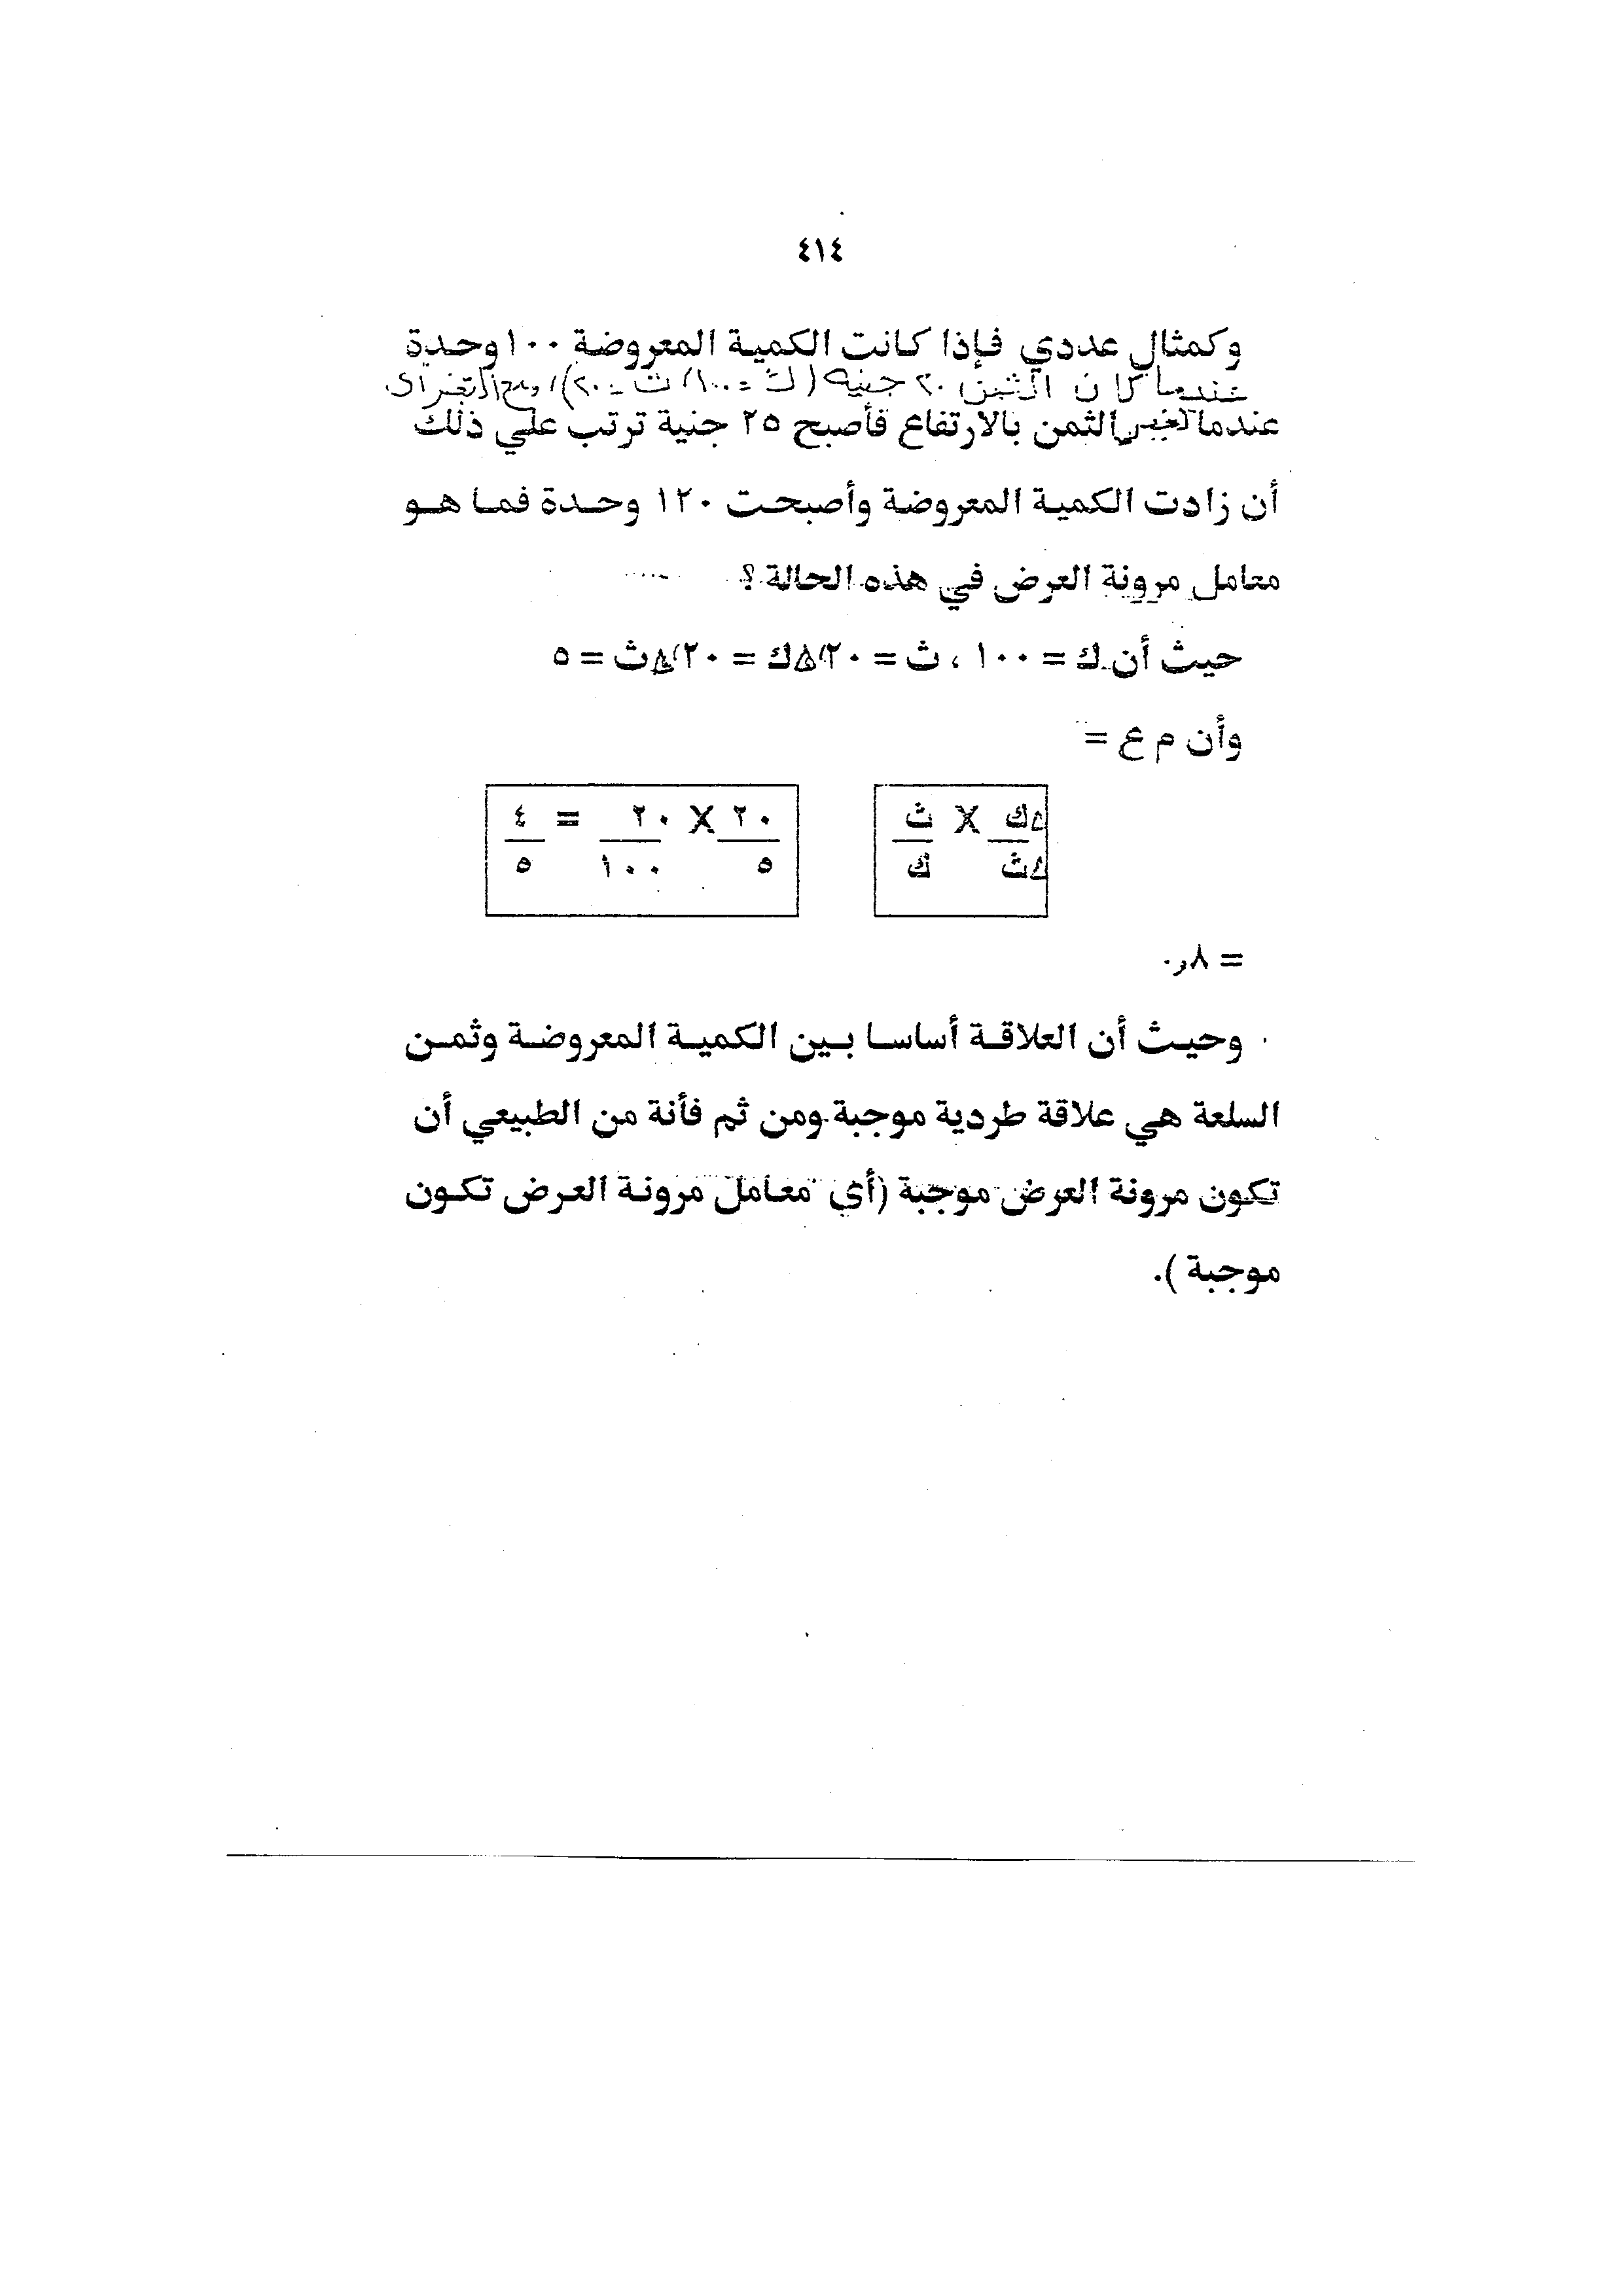 ٤١٤
وكمثال عددي فإذا كانت الكمية المعروضة ١٠٠ وحدة
عندما كان الثمن ٢٠ جنيه (ك = ١٠٠، ث = ٢٠)،
عندما تغير الثمن بالارتفاع فأصبح ٢٥ جنية ترتب علي ذلك
أن زادت الكمية المعروضة وأصبحت ١٢٠ وحدة فما هو
معامل مرونة العرض في هذه الحالة ؟
حيث أن ك = ١٠٠ ، ث = ٢٠، Δك = ٢٠، Δث = ٥
وأن م ع =
Δك X ث
Δث ك
٢٠ X ٢٠ = ٤
٥ ١٠٠ ٥
= ٨ر٠
وحيث أن العلاقة أساسا بين الكمية المعروضة وثمن
السلعة هي علاقة طردية موجبة ومن ثم فأنة من الطبيعي أن
تكون مرونة العرض موجبة (أي معامل مرونة العرض تكون
موجبة ).